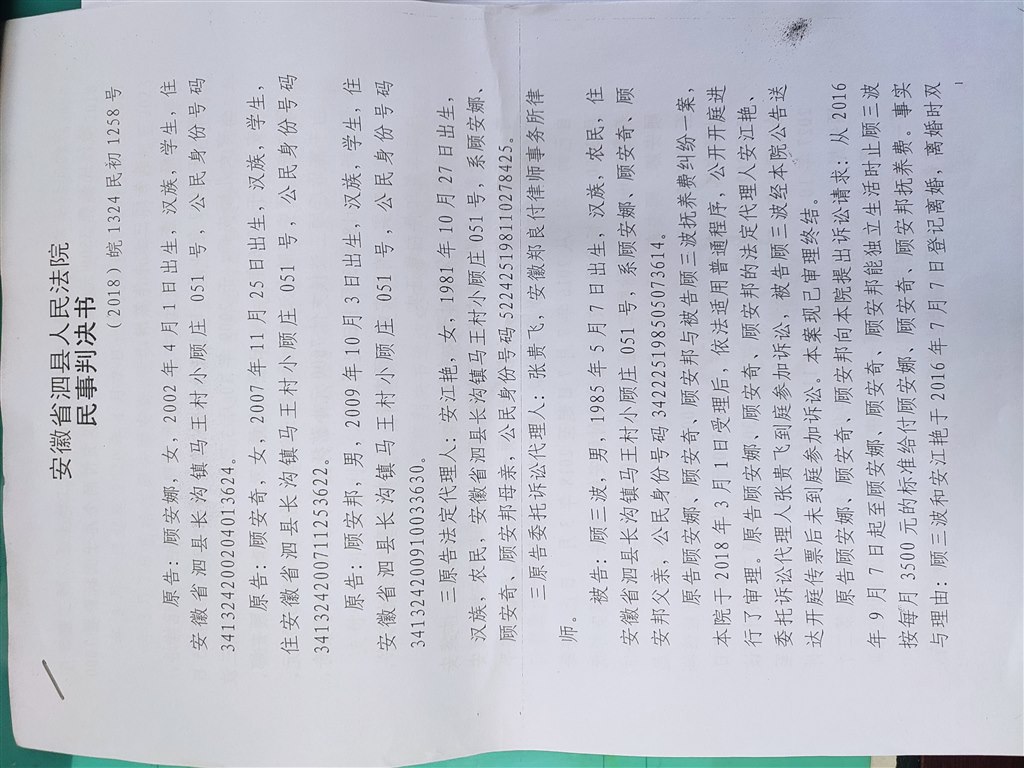 安徽省泗县人民法院
民事判决书
（2018）皖1324民初1258号
原告：顾安娜，女，2002年4月1日出生，汉族，学生，住
安徽省泗县长沟镇马王村小顾庄051号，公民身份号码
341324200204013624。
原告：顾安奇，女，2007年11月25日出生，汉族，学生，
住安徽省泗县长沟镇马王村小顾庄051号，公民身份号码
341324200711253622。
原告：顾安邦，男，2009年10月3日出生，汉族，学生，住
安徽省泗县长沟镇马王村小顾庄051号，公民身份号码
341324200910033630。
三原告法定代理人：安江艳，女，1981年10月27日出生，
汉族，农民，安徽省泗县长沟镇马王村小顾庄051号，系顾安娜、
顾安奇、顾安邦母亲，公民身份号码522425198110278425。
三原告委托诉讼代理人：张贵飞，安徽郑良付律师事务所律
师。
被告：顾三波，男，1985年5月7日出生，汉族，农民，住
安徽省泗县长沟镇马王村小顾庄051号，系顾安娜、顾安奇、顾
安邦父亲，公民身份号码342225198505073614。
原告顾安娜、顾安奇、顾安邦与被告顾三波抚养费纠纷一案，
本院于2018年3月1日受理后，依法适用普通程序，公开开庭进
行了审理。原告顾安娜、顾安奇、顾安邦的法定代理人安江艳、
委托诉讼代理人张贵飞到庭参加诉讼，被告顾三波经本院公告送
达开庭传票后未到庭参加诉讼。本案现已审理终结。
原告顾安娜、顾安奇、顾安邦向本院提出诉讼请求：从2016
年9月7日起至顾安娜、顾安奇、顾安邦能独立生活时止顾三波
按每月3500元的标准给付顾安娜、顾安奇、顾安邦抚养费。事实
与理由：顾三波和安江艳于2016年7月7日登记离婚，离婚时双
1